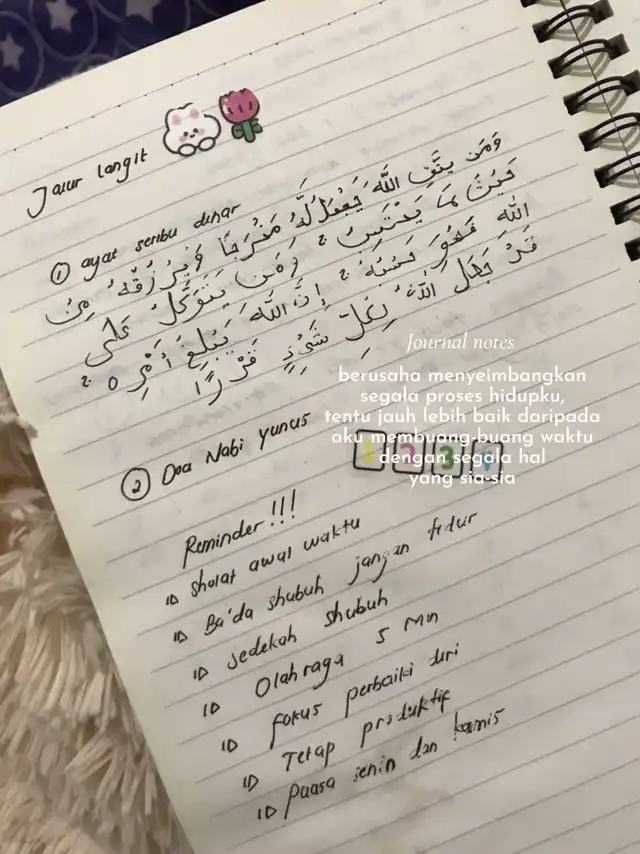 Jalur langit
① ayat seribu dinar
وَمَن يَتَّقِ اللّٰهَ يَجْعَلْ لَهُ مَخْرَجًا وَيَرْزُقْهُ مِنْ
حَيْثُ لَا يَحْتَسِبُ ۚ وَمَنْ يَتَوَكَّلْ عَلَى
اللّٰه فَهُوَ حَسْبُهُ ۚ إِنَّ اللّٰهَ يَبْلِغُ أَمْرِهِ ۚ
قَدْ جَعَلَ اللّٰهُ لِكُلِّ شَيْءٍ قَدْرًا
Journal notes
berusaha menyeimbangkan
segala proses hidupku,
tentu jauh lebih baik daripada
aku membuang-buang waktu
dengan segala hal
yang sia-sia
② Doa Nabi yunus
1 2 3 4
Reminder !!!
sholat awal waktu
Ba'da shubuh jangan tidur
sedekah shubuh
Olahraga 5 mn
fokus perbaiki diri
Tetap produktif
puasa senin dan kamis